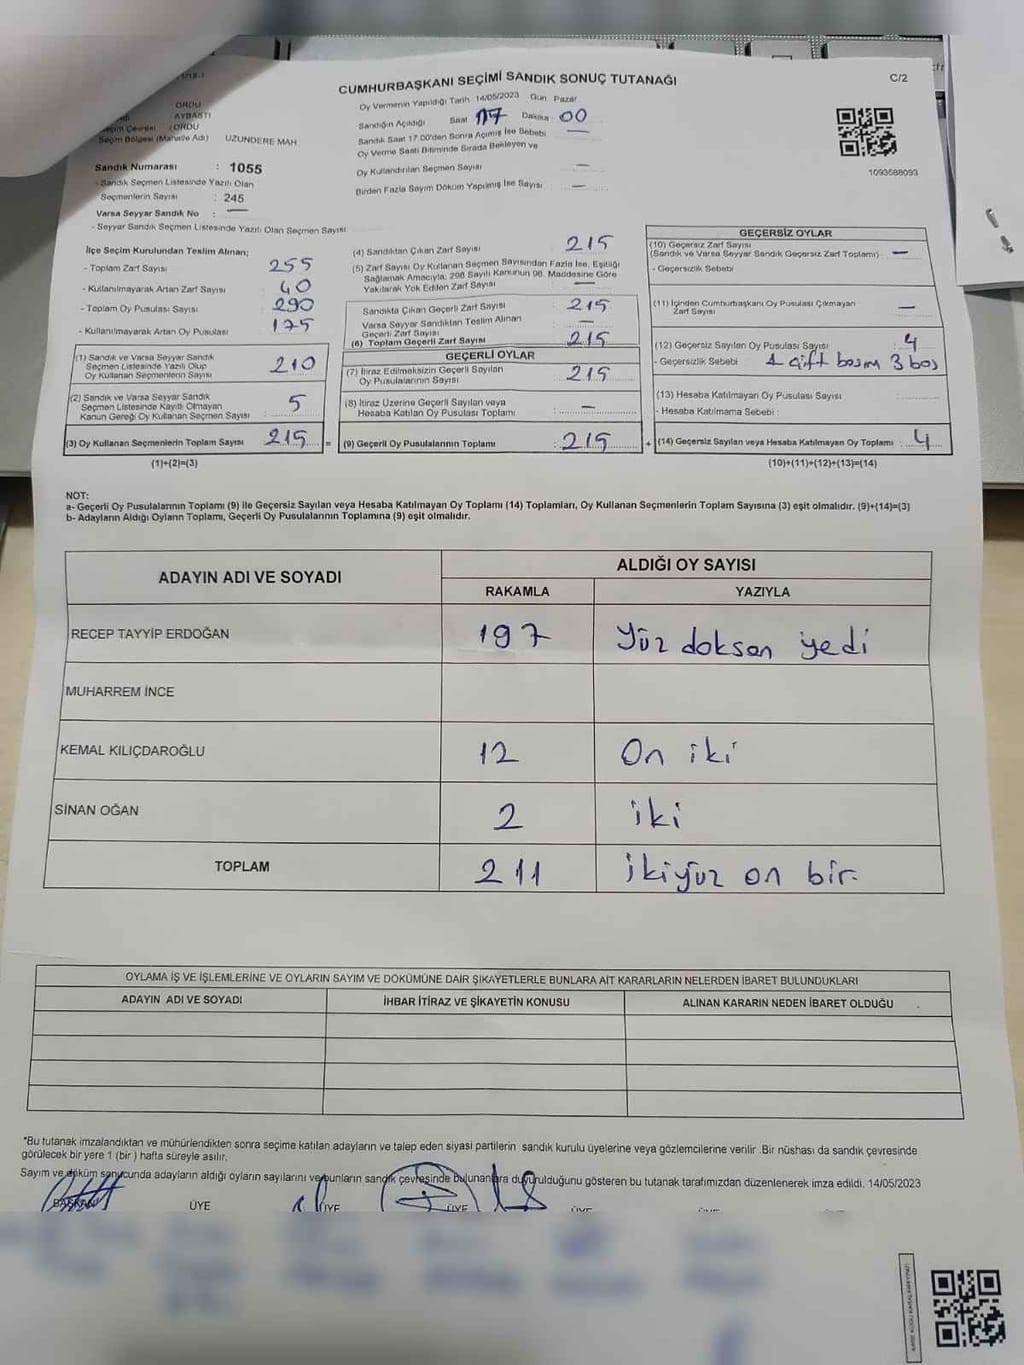 CUMHURBAŞKANI SEÇİMİ SANDIK SONUÇ TUTANAĞI
C/2
ORDU
AYBASTI
ORDU
Seçim Bölgesi (Mahalle Adı) UZUNDERE MAH
Sandık Numarası : 1055
- Sandık Seçmen Listesinde Yazılı Olan
Seçmenlerin Sayısı : 245
Varsa Seyyar Sandık No : —
- Seyyar Sandık Seçmen Listesinde Yazılı Olan Seçmen Sayısı
Oy Vermenin Yapıldığı Tarih 14/05/2023 Gün Pazar
Sandığın Açıldığı Saat 17 Dakika 00
Sandık Saat 17.00'den Sonra Açılmış İse Sebebi —
Oy Verme Saati Bitiminde Sırada Bekleyen ve
Oy Kullandırılan Seçmen Sayısı —
Birden Fazla Sayım Döküm Yapılmış İse Sayısı —
1093688093
İlçe Seçim Kurulundan Teslim Alınan;
- Toplam Zarf Sayısı : 255
- Kullanılmayarak Artan Zarf Sayısı : 40
- Toplam Oy Pusulası Sayısı : 290
- Kullanılmayarak Artan Oy Pusulası : 175
(1) Sandık ve Varsa Seyyar Sandık
Seçmen Listesinde Yazılı Olup
Oy Kullanan Seçmenlerin Sayısı : 210
(2) Sandık ve Varsa Seyyar Sandık
Seçmen Listesinde Kayıtlı Olmayan
Kanun Gereği Oy Kullanan Seçmen Sayısı : 5
(3) Oy Kullanan Seçmenlerin Toplam Sayısı : 215 =
(1)+(2)=(3)
(4) Sandıktan Çıkan Zarf Sayısı : 215
(5) Zarf Sayısı Oy Kullanan Seçmen Sayısından Fazla İse, Eşitliği
Sağlamak Amacıyla; 298 Sayılı Kanunun 98. Maddesine Göre
Yakılarak Yok Edilen Zarf Sayısı —
Sandıkta Çıkan Geçerli Zarf Sayısı : 215
Varsa Seyyar Sandıktan Teslim Alınan
Geçerli Zarf Sayısı —
(6) Toplam Geçerli Zarf Sayısı : 215
GEÇERLİ OYLAR
(7) İtiraz Edilmeksizin Geçerli Sayılan
Oy Pusulalarının Sayısı : 215
(8) İtiraz Üzerine Geçerli Sayılan veya
Hesaba Katılan Oy Pusulası Toplamı : —
(9) Geçerli Oy Pusulalarının Toplamı : 215 +
GEÇERSİZ OYLAR
(10) Geçersiz Zarf Sayısı
(Sandık ve Varsa Seyyar Sandık Geçersiz Zarf Toplamı) : —
- Geçersizlik Sebebi
(11) İçinden Cumhurbaşkanı Oy Pusulası Çıkmayan
Zarf Sayısı : —
(12) Geçersiz Sayılan Oy Pusulası Sayısı : 4
- Geçersizlik Sebebi : 1 çift basım 3 boş
(13) Hesaba Katılmayan Oy Pusulası Sayısı :
- Hesaba Katılmama Sebebi :
(14) Geçersiz Sayılan veya Hesaba Katılmayan Oy Toplamı : 4
(10)+(11)+(12)+(13)=(14)
NOT:
a- Geçerli Oy Pusulalarının Toplamı (9) ile Geçersiz Sayılan veya Hesaba Katılmayan Oy Toplamı (14) Toplamları, Oy Kullanan Seçmenlerin Toplam Sayısına (3) eşit olmalıdır. (9)+(14)=(3)
b- Adayların Aldığı Oyların Toplamı, Geçerli Oy Pusulalarının Toplamına (9) eşit olmalıdır.
ADAYIN ADI VE SOYADI
ALDIĞI OY SAYISI
RAKAMLA YAZIYLA
RECEP TAYYİP ERDOĞAN 197 Yüz doksan yedi
MUHARREM İNCE
KEMAL KILIÇDAROĞLU 12 On iki
SİNAN OĞAN 2 iki
TOPLAM 211 ikiyüz on bir
OYLAMA İŞ VE İŞLEMLERİNE VE OYLARIN SAYIM VE DÖKÜMÜNE DAİR ŞİKAYETLERLE BUNLARA AİT KARARLARIN NELERDEN İBARET BULUNDUKLARI
ADAYIN ADI VE SOYADI İHBAR İTİRAZ VE ŞİKAYETİN KONUSU ALINAN KARARIN NEDEN İBARET OLDUĞU
*Bu tutanak imzalandıktan ve mühürlendikten sonra seçime katılan adayların ve talep eden siyasi partilerin sandık kurulu üyelerine veya gözlemcilerine verilir .Bir nüshası da sandık çevresinde
görülecek bir yere 1 (bir ) hafta süreyle asılır.
Sayım ve döküm sonucunda adayların aldığı oyların sayılarını ve bunların sandık çevresinde bulunanlara duyurulduğunu gösteren bu tutanak tarafımızdan düzenlenerek imza edildi. 14/05/2023
BAŞKAN ÜYE ÜYE ÜYE